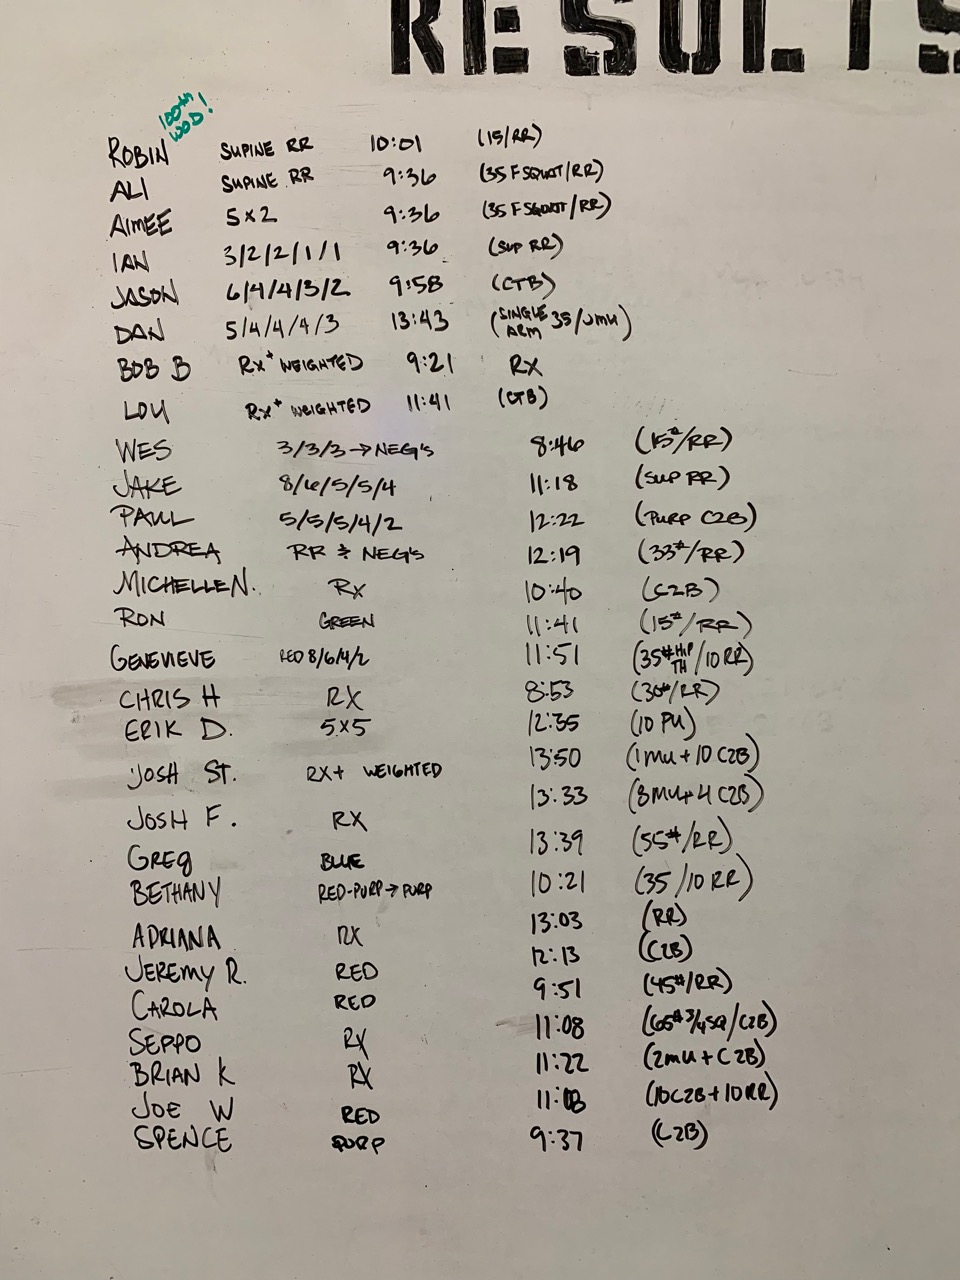 RESULTS
100th
WOD!
ROBIN SUPINE RR 10:01 (15/RR)
ALI SUPINE RR 9:36 (35 F SQUAT/RR)
AIMEE 5x2 9:36 (35 F SQUAT/RR)
IAN 3/2/2/1/1 9:36 (SUP RR)
JASON 6/4/4/3/2 9:58 (CTB)
DAN 5/4/4/4/3 13:43 (SINGLE ARM 35/JMU)
BOB B RX+ WEIGHTED 9:21 RX
LOU RX+ WEIGHTED 11:41 (CTB)
WES 3/3/3→NEG'S 8:46 (15#/RR)
JAKE 8/6/5/5/4 11:18 (SUP RR)
PAUL 5/5/5/4/2 12:22 (PURP C2B)
ANDREA RR & NEG'S 12:19 (33#/RR)
MICHELLE N. RX 10:40 (C2B)
RON GREEN 11:41 (15#/RR)
GENEVIEVE RED 8/6/4/2 11:51 (35# HIP TH/10 RR)
CHRIS H RX 8:53 (30#/RR)
ERIK D. 5x5 12:35 (10 PU)
JOSH ST. RX+ WEIGHTED 13:50 (1MU+10 C2B)
JOSH F. RX 13:33 (8MU+4 C2B)
GREG BLUE 13:39 (55#/RR)
BETHANY RED-PURP→PURP 10:21 (35/10 RR)
ADRIANA RX 13:03 (RR)
JEREMY R. RED 12:13 (C2B)
CAROLA RED 9:51 (45#/RR)
SEPPO RX 11:08 (65# 3/4 SQ/C2B)
BRIAN K RX 11:22 (2MU+C2B)
JOE W RED 11:08 (10C2B+10RR)
SPENCE PURP 9:37 (C2B)